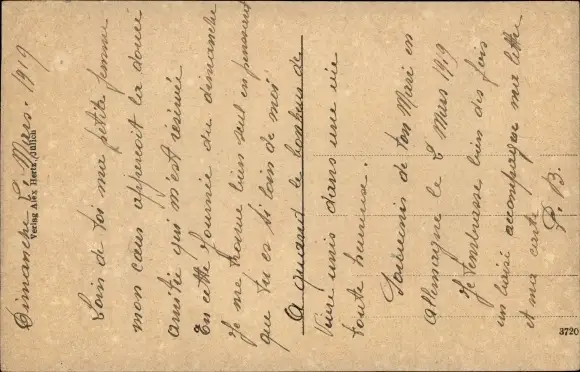 Dimanche Mars. 1919
Verlag Alex Hertz, Jülich
Loin de toi ma petite femme
mon cœur apperçoit la douce
amitié qui m'est réservée
En cette Journée du dimanche
Je me trouve bien seul en pensant
que tu es si loin de moi
A quand le bonheur de
vivre unis dans une vie
toute heureuse.
Souvenir de ton Mari en
Allemagne le Mars 1919
Je t'embrasse bien des fois
un baisé accompagne ma lettre
et ma carte
P. B.
3720